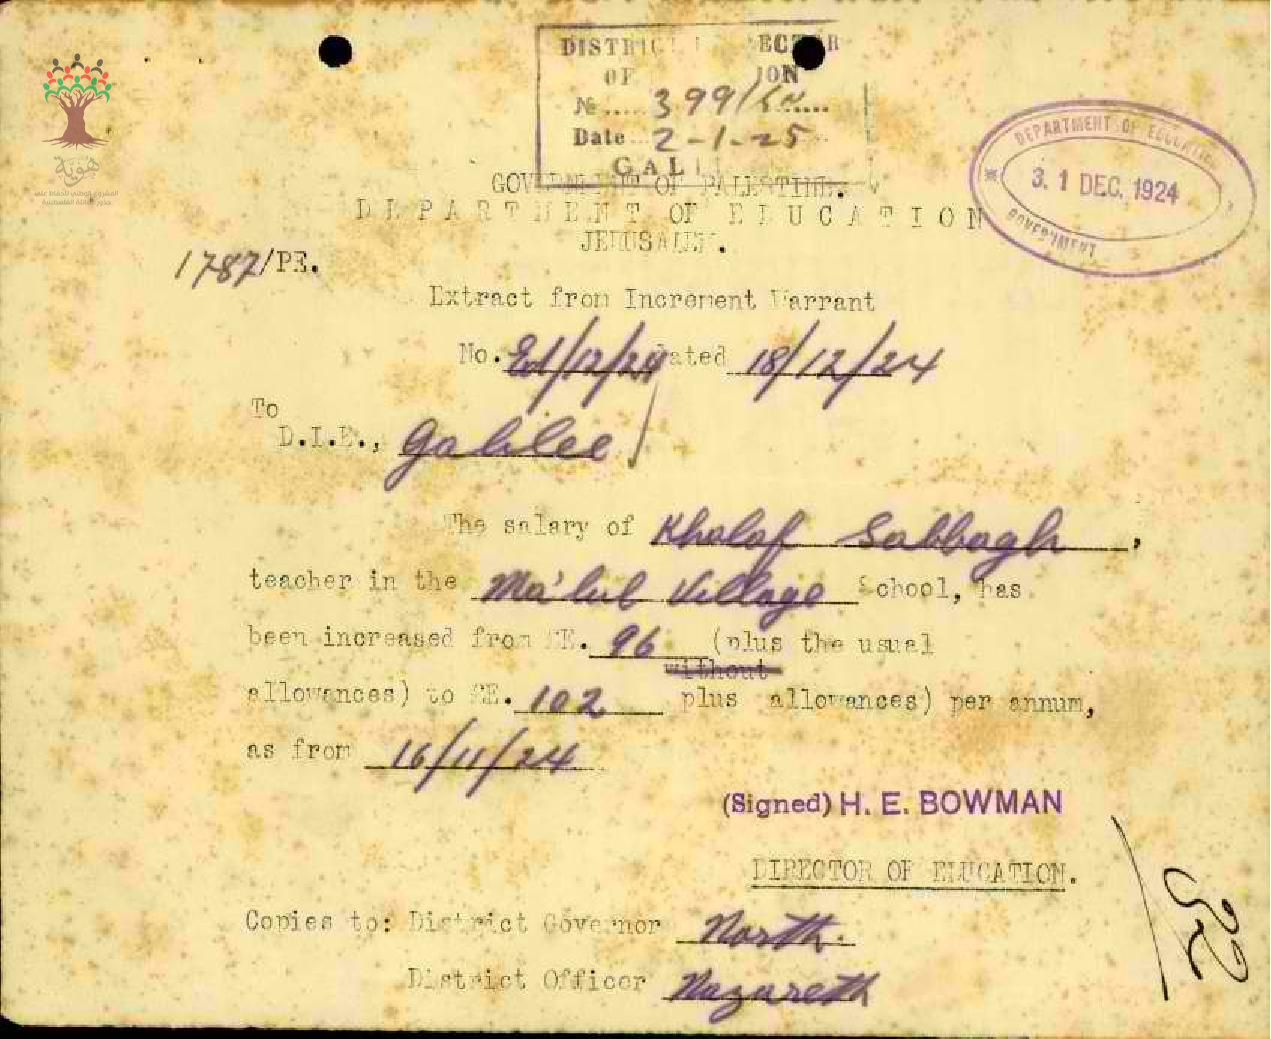 هوية
المشروع الوطني للحفاظ على
جذور العائلة الفلسطينية
DISTRICT INSPECTOR
OF EDUCATION
No 399/
Date 2-1-25
GALILEE
DEPARTMENT OF EDUCATION
31 DEC. 1924
GOVERNMENT
GOVERNMENT OF PALESTINE.
DEPARTMENT OF EDUCATION
JERUSALEM.
1787/PE.
Extract from Increment Warrant
No. Ed/12/24 dated 18/12/24
To
D.I.E., Galilee
The salary of Khalaf Sabbagh,
teacher in the Ma'lul Village School, has
been increased from £E. 96 (plus the usual
without
allowances) to £E. 102 plus allowances) per annum,
as from 16/11/24
(Signed) H. E. BOWMAN
DIRECTOR OF EDUCATION.
Copies to: District Governor North.
District Officer Nazareth